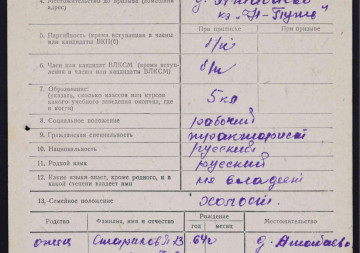 4. Местожительство до призыва (домашний адрес)
д.
При приписке
При призыве
5. Партийность (время вступления в члены или кандидаты ВКП(б)
б/п
6. Член или кандидат ВЛКСМ (время вступления в члены или кандидаты ВЛКСМ)
б/п
7. Образование
(указать, сколько классов или курсов какого учебного заведения окончил, где и когда)
5 кл
8. Социальное положение
рабочий
9. Гражданская специальность
тракторист
10. Национальность
русский
11. Родной язык
русский
12. Какие языки знает, кроме родного, и в какой степени владеет ими
не владеет
13. Семейное положение
холост.
Родство
Фамилия, имя и отчество
Рождение
год
месяц
Местожительство
отец
64 г
д.